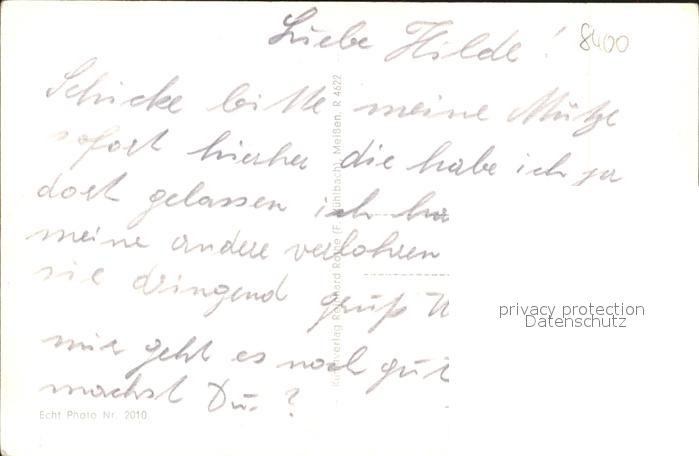 Liebe Hilde! 8400
Schicke bitte meine Mütze
sofort hierher die habe ich ja
dort gelassen ich
meine andere verlohren
sie dringend gruß
privacy protection
Datenschutz
mir geht es noch gut
machst Du.?
Echt Photo Nr. 2010
Meißen, R 4622